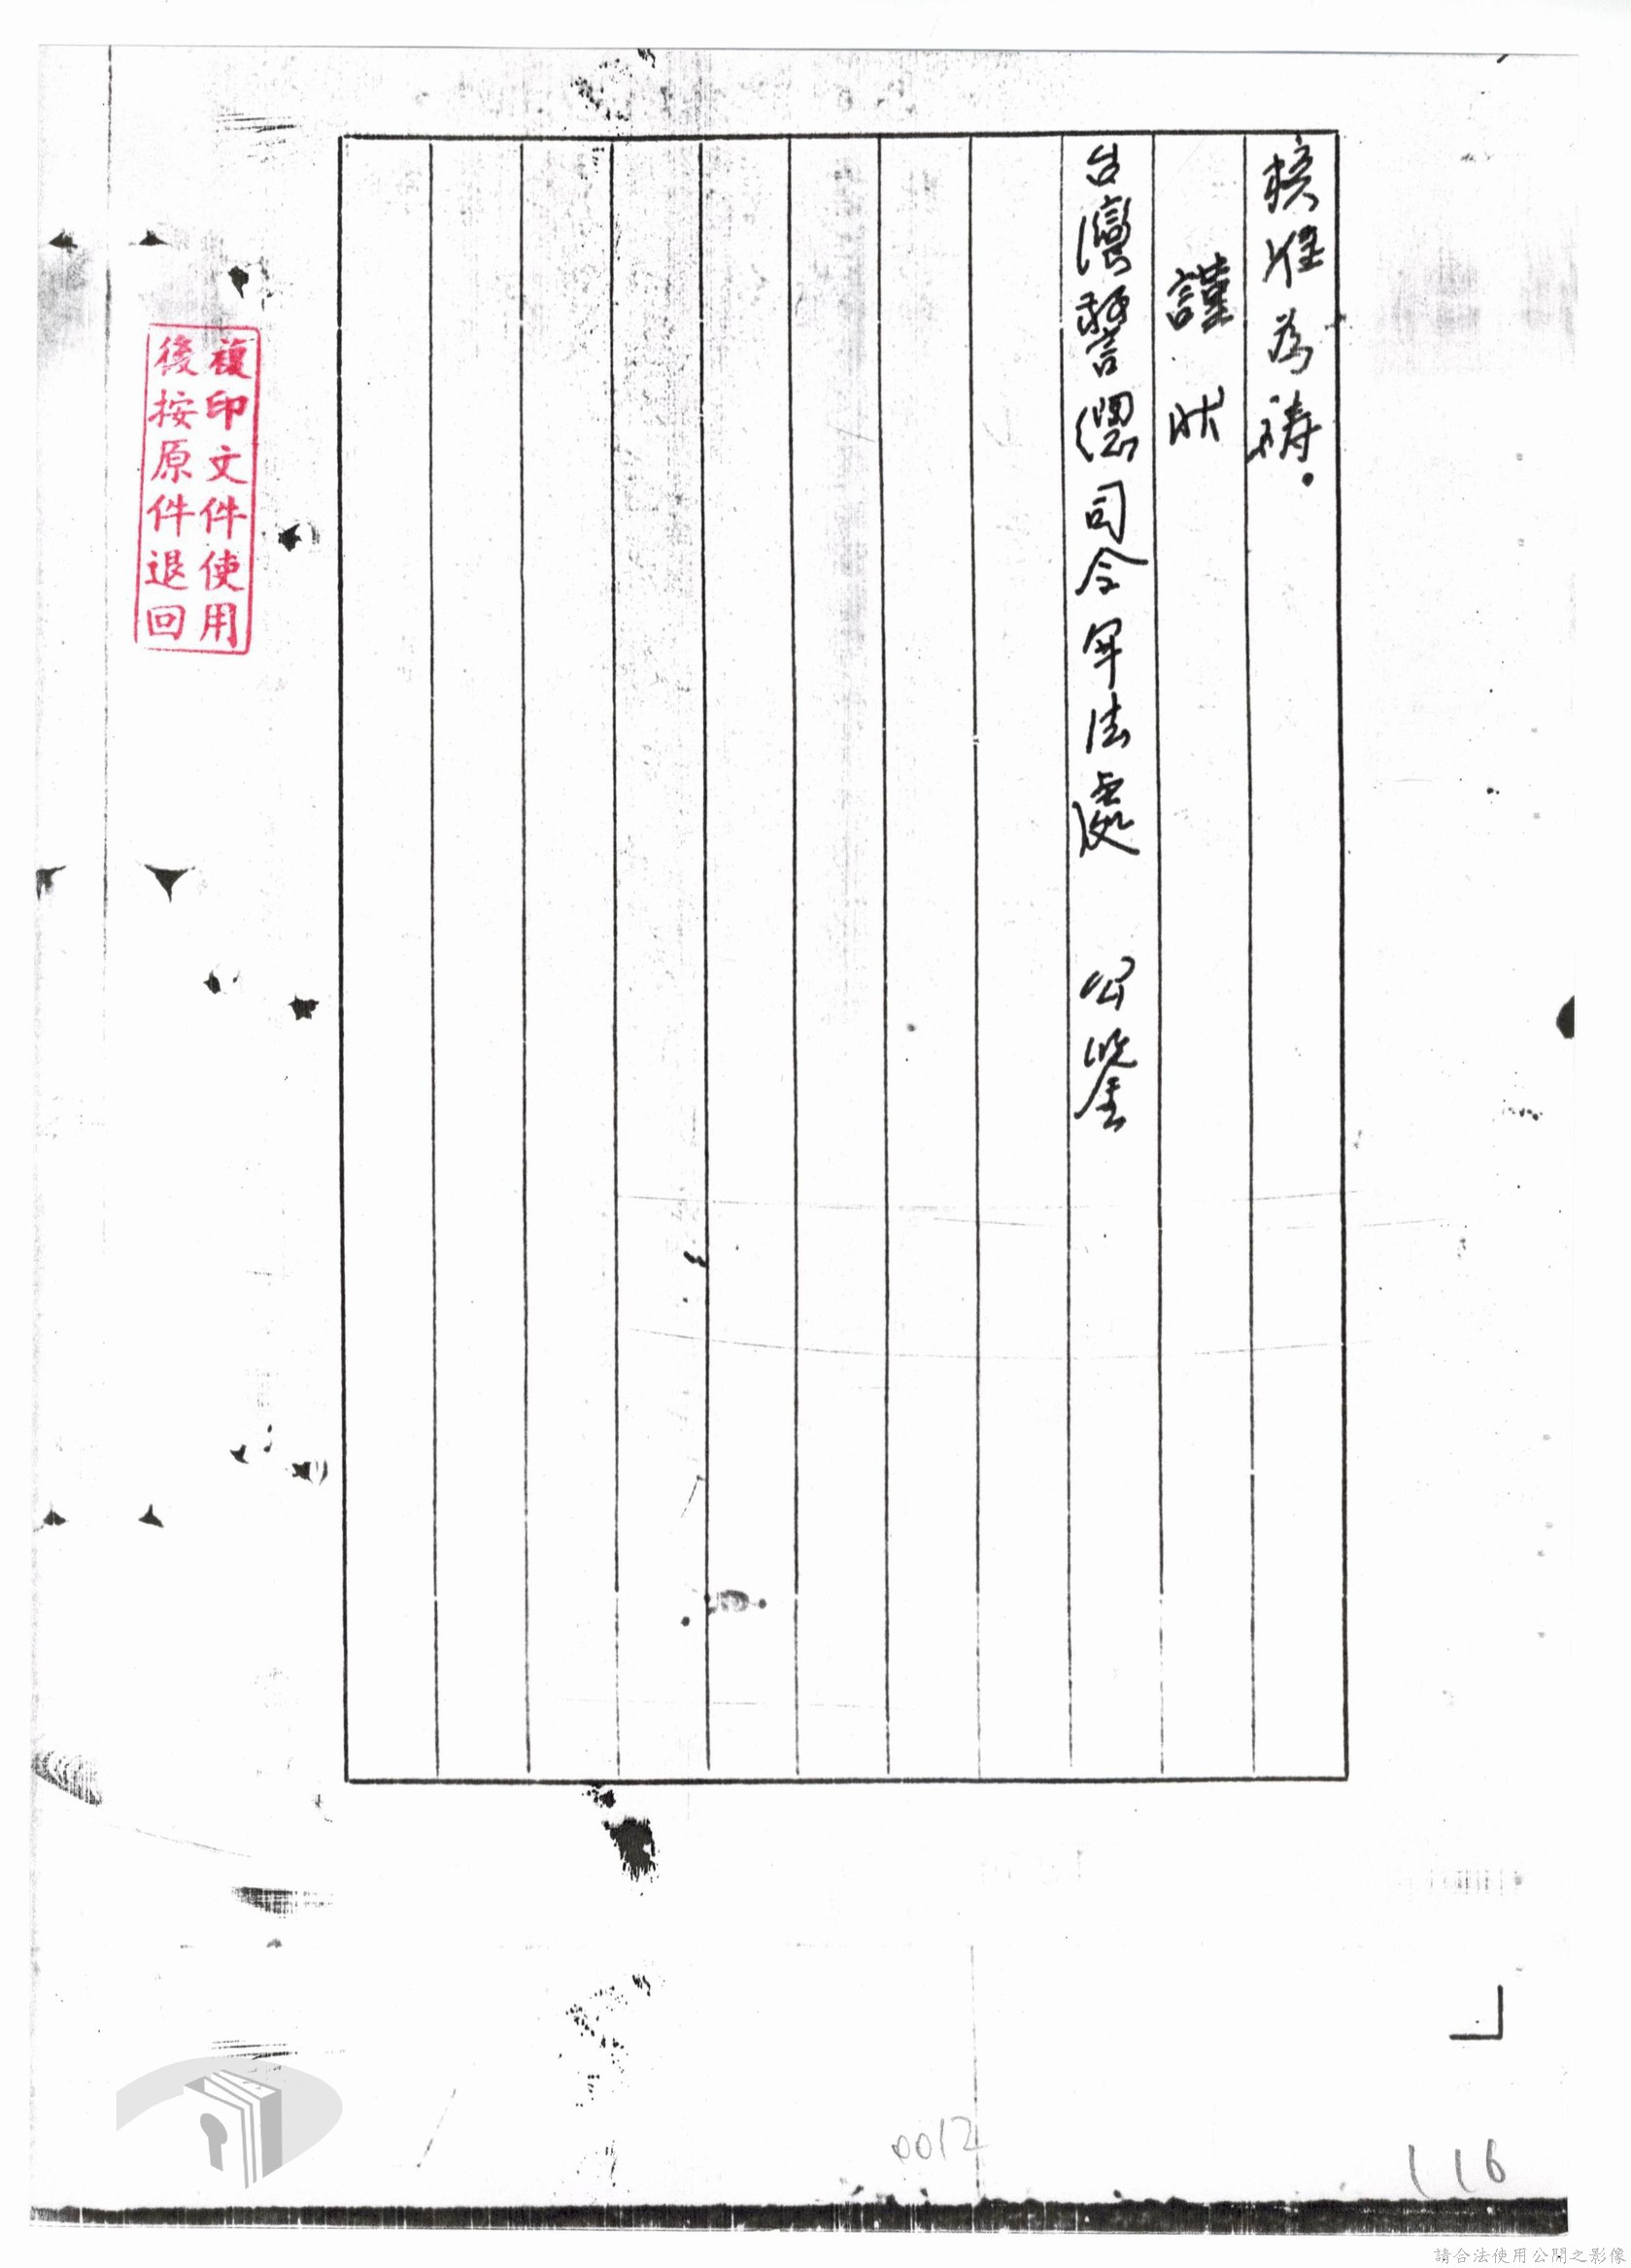 核准為禱.
謹狀
台灣警備司令軍法處 公鑒
複印文件使用
後按原件退回
0012
116
請合法使用公開之影像